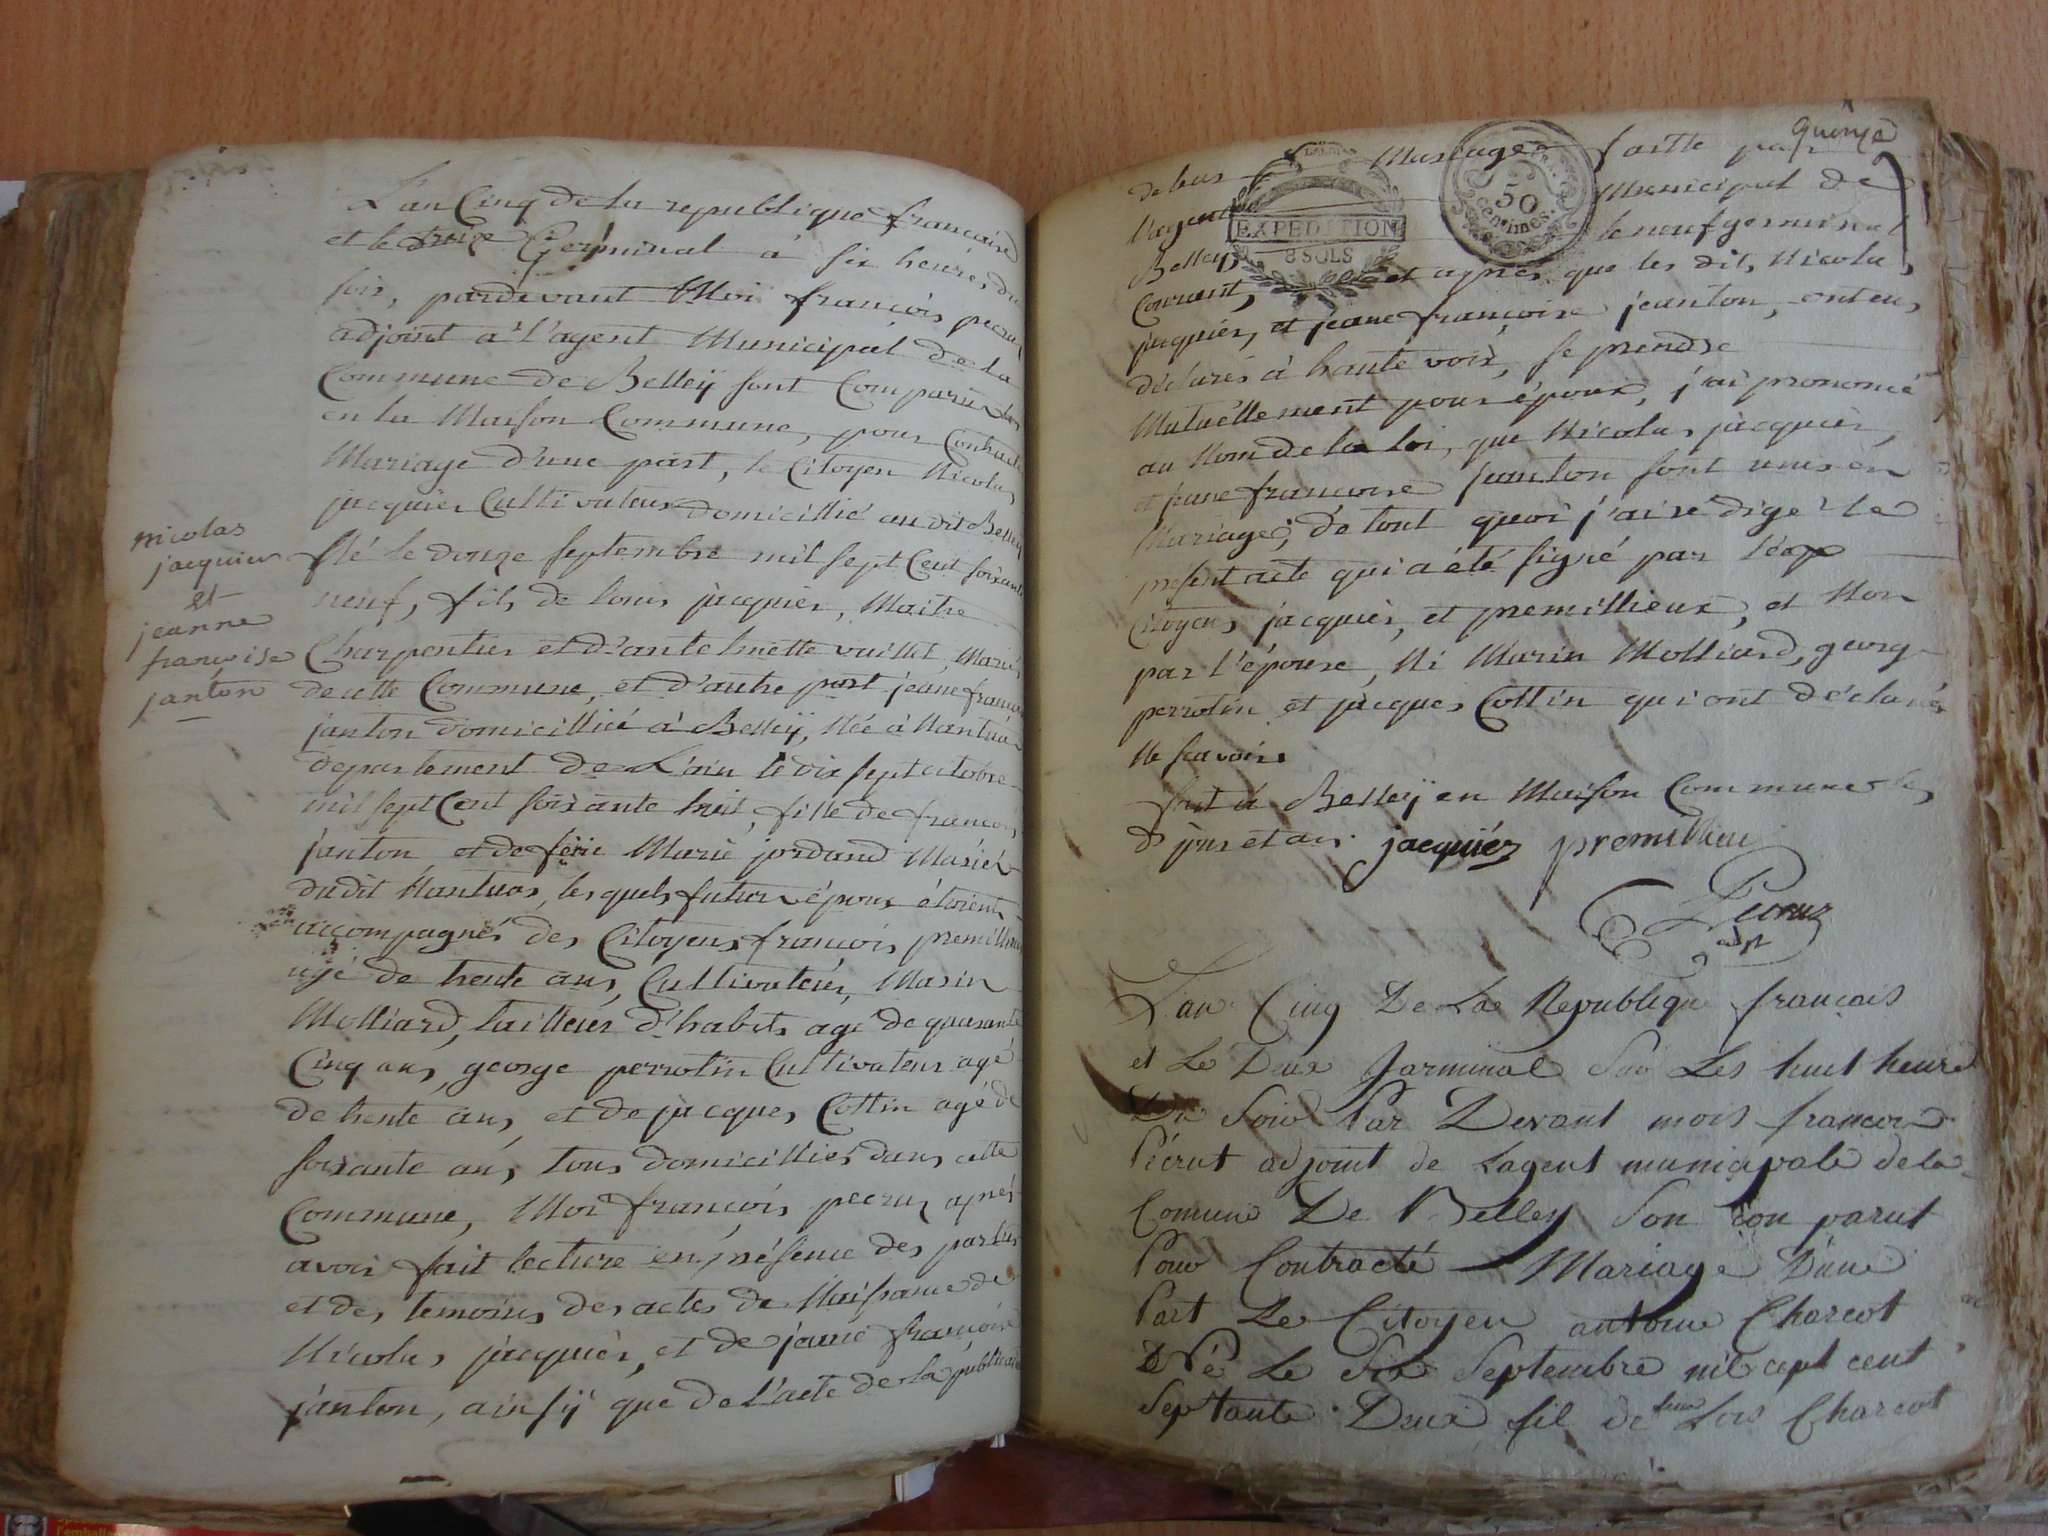 L'an Cinq de la republique francaise
et le Germinal à six heures du
soir, pardevant Moi françois pecruz
adjoint a l'agent Municipal de la
Commune de Belleÿ sont Comparu
en la Maison Commune, pour Contracter
Mariage d'une part, le Citoyen Nicolas
jacquier Cultivateur domicillié au dit Belleÿ
Né le douze septembre mil sept Cent soixante
neuf, fils de louis jacquier, Maitre
Charpentier et d'antelmette vuillet, Mariés
de cette Commune, et d'autre part jeane françoise
janton domicilliée à Belleÿ, Née à Nantua
departement de L'ain le dix sept octobre
mil sept Cent soixante huit, fille de francois
janton et de Marie jordand Mariés
dudit Nantuas, lesquels futur époux étoient
accompagnés des Citoyens françois premillieux
agé de trente ans, Cultivateur, Marin
Molliard, tailleur d'habits agé de quarante
Cinq ans, george perrotin Cultivateur agé
de trente ans, et de jacques Cottin agé de
soixante ans, tous domicilliés dans cette
Commune, Moi françois pecruz aprés
avoir fait lecture en présence des parties
et des temoins des actes de Naissance de
Nicolas jacquier, et de jeane françoise
janton, ainsÿ que de l'acte de la publication
nicolas
jacquier
et
jeanne
françoise
janton
quinze
de leur Mariage faitte par
l'agent Municipal de
Belleÿ le neuf germinal
Courant, et aprés que les dits Nicolas
jacquier, et jeane françoise jeanton, ont eu
déclarés à haute voix, se prendre
Mutuéllement pour époux, j'ai prononcé
au Nom de la loi, que Nicolas jacquier,
et jeane francoise janton sont unis en
Mariage, de tout quoi j'ai rédigé le
présent acte qui a été signé par
Citoyens jacquier, et premillieux, et Non
par l'épouse, Ni Marin Molliard, george
perrotin et jacques Cottin qui ont déclarés
Ne scavoir
fait à Belleÿ en Maison Commune les
jour et an. jacquiér premillieu
Pecruz
adjt
EXPEDITION
8 SOLS
50
centimes.
L'an Cinq De La Republique français
et Le Deux Jarminal Les huit heure
Du Soir Par Devant mois francois
Pécrut adjoint de Lagent municipale de la
Comune De Belley Son Con parut
Pour Contracté Mariage D'une
Part Le Citoyen antoine Charcot
Né Le Six Septembre mil cept cent
Septante Deux fil de feu Lois Charcot